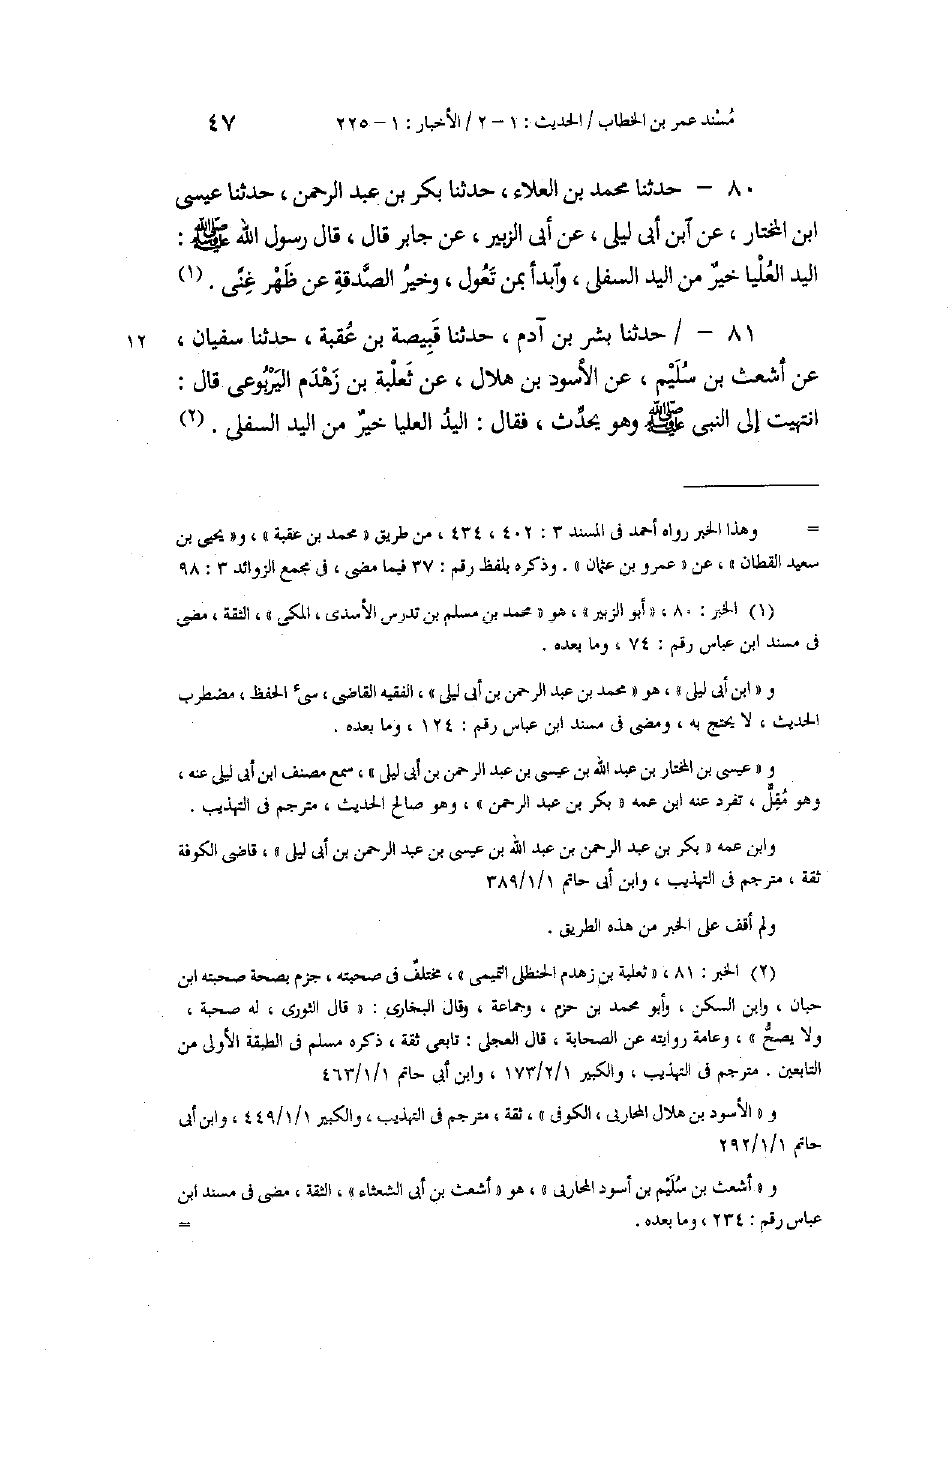 مُسْند عمر بن الخطاب / الحديث : ١ – ٢ / الأخبار : ١ – ٢٢٥ ٤٧
٨٠ – حدثنا محمد بن العلاء ، حدثنا بكر بن عبد الرحمن ، حدثنا عيسى
ابن المختار ، عن آبن أبى ليلى ، عن أبى الزبير ، عن جابر قال ، قال رسول الله ﷺ :
اليد العُلْيا خيرٌ من اليد السفلى ، وآبدأ بمن تَعُول ، وخيرُ الصَّدقةِ عن ظَهْر غِنًى . (١)
٨١ – / حدثنا بشر بن آدم ، حدثنا قَبِيصة بن عُقبة ، حدثنا سفيان ، ١٢
عن أشعث بن سُلَيْم ، عن الأسود بن هلال ، عن ثَعلْبة بن زَهْدَم اليَرْبُوعى قال :
انتهيت إلى النبى ﷺ وهو يحدِّث ، فقال : اليدُ العليا خيرٌ من اليد السفلى . (٢)
= وهذا الخبر رواه أحمد فى المسند ٣ : ٤٠٢ ، ٤٣٤ ، من طريق « محمد بن عقبة » ، و« يحيى بن
سعيد القطان » ، عن « عمرو بن عثمان » . وذكره بلفظ رقم : ٣٧ فيما مضى ، فى مجمع الزوائد ٣ : ٩٨
(١) الخبر : ٨٠ ، « أبو الزبير » ، هو « محمد بن مسلم بن تدرس الأسدى ، المكى » ، الثقة ، مضى
فى مسند ابن عباس رقم : ٧٤ ، وما بعده .
و « ابن أبى ليلى » ، هو « محمد بن عبد الرحمن بن أبى ليلى » ، الفقيه القاضى ، سىء الحفظ ، مضطرب
الحديث ، لا يحتج به ، ومضى فى مسند ابن عباس رقم : ١٢٤ ، وما بعده .
و « عيسى بن المختار بن عبد الله بن عيسى بن عبد الرحمن بن أبى ليلى » ، سمع مصنف ابن أبى ليلى عنه ،
وهو مُقِلٌّ ، تفرد عنه ابن عمه « بكر بن عبد الرحمن » ، وهو صالح الحديث ، مترجم فى التهذيب .
وابن عمه « بكر بن عبد الرحمن بن عبد الله بن عيسى بن عبد الرحمن بن أبى ليلى » ، قاضى الكوفة
ثقة ، مترجم فى التهذيب ، وابن أبى حاتم ٣٨٩/١/١
ولم أقف على الخبر من هذه الطريق .
(٢) الخبر : ٨١ ، « ثعلبة بن زهدم الحنظلى التميمى » ، مختلفٌ فى صحبته ، جزم بصحة صحبته ابن
حبان ، وابن السكن ، وأبو محمد بن حزم ، وجماعة ، وقال البخارى : « قال الثورى ، له صحبة ،
ولا يصحُّ » ، وعامة روايته عن الصحابة ، قال العجلى : تابعى ثقة ، ذكره مسلم فى الطبقة الأولى من
التابعين . مترجم فى التهذيب ، والكبير ١٧٣/٢/١ ، وابن أبى حاتم ٤٦٣/١/١
و « الأسود بن هلال المحاربى ، الكوفى » ، ثقة ، مترجم فى التهذيب ، والكبير ٤٤٩/١/١ ، وابن أبى
حاتم ٢٩٢/١/١
و « أشعث بن سُلَيْم بن أسود المحاربى » ، هو « أشعث بن أبى الشعثاء » ، الثقة ، مضى فى مسند ابن
عباس رقم : ٢٣٤ ، وما بعده . =